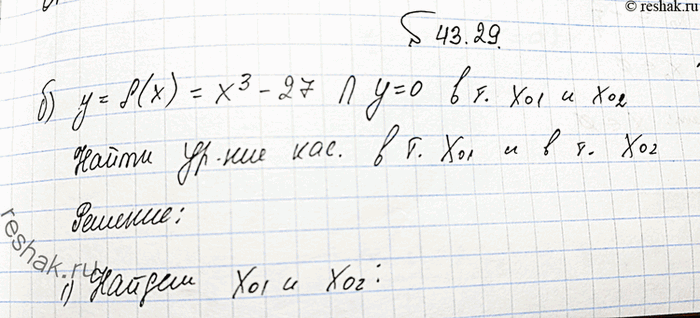 © reshak.ru
§ 43.29.
б) y = f(x) = x³ - 27 ∩ y=0 в т. x₀₁ и x₀₂
Найти ур-ние кас. в т. x₀₁ и в т. x₀₂
Решение:
reshak.ru
1) Найдем x₀₁ и x₀₂: